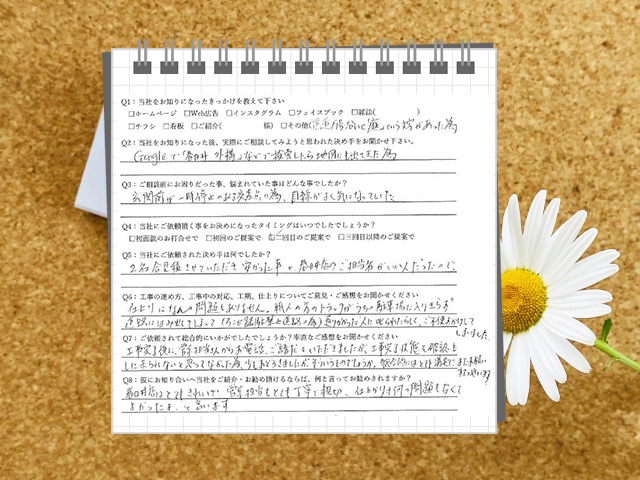 Q1：当社をお知りになったきっかけを教えて下さい
□ホームページ □Web広告 □インスタグラム □フェイスブック □雑誌( )
□チラシ □看板 □ご紹介( 様) □その他( 沿いに 庭」という があった為
Q2：当社をお知りになった後、実際にご相談してみようと思われた決め手をお聞かせ下さい。
Googleで「春日井 外構」などで検索したら地図にも出てきた為
Q3：ご相談前にお困りだった事、悩まれていた事はどんな事でしたか？
玄関前が一時停止のある交差点の為、目線がよく気になっていた
Q4：当社にご依頼頂く事をお決めになったタイミングはいつでしたでしょうか？
□初面談のお打合せで □初回のご提案で □二回目のご提案で □三回目以降のご提案で
Q5：当社にご依頼された決め手は何でしたか？
2社合見積させていただき 安かった事と、春日井店のご担当者がいい人だったので。
Q6：工事の進め方、工事中の対応、工期、仕上りについてご意見・ご感想をお聞かせください
仕上りになんの問題もありません。職人の方のトラックがうちの駐車場に入りきらず
道路にはみ出てしまって 通りかかった人に
しました。
Q7：ご依頼されて総合的にいかがでしたでしょうか？率直なご感想をお聞かせください
工事完了後に、営業担当さんからお電話 ご 話 いただきましたが、工事完了状態を確認
しに来られないと思ってなかった 少しおどろきましたが、そういうものでしょうか。総合的にはとても満足
Q8：仮にお知り合いへ当社をご紹介・お勧め頂けるならば、何と言ってお勧めされますか？
春日井店はとてもきれいで、営業担当もとても丁寧で親切、仕上がりも何の問題もなくて
よかったよ。と言います